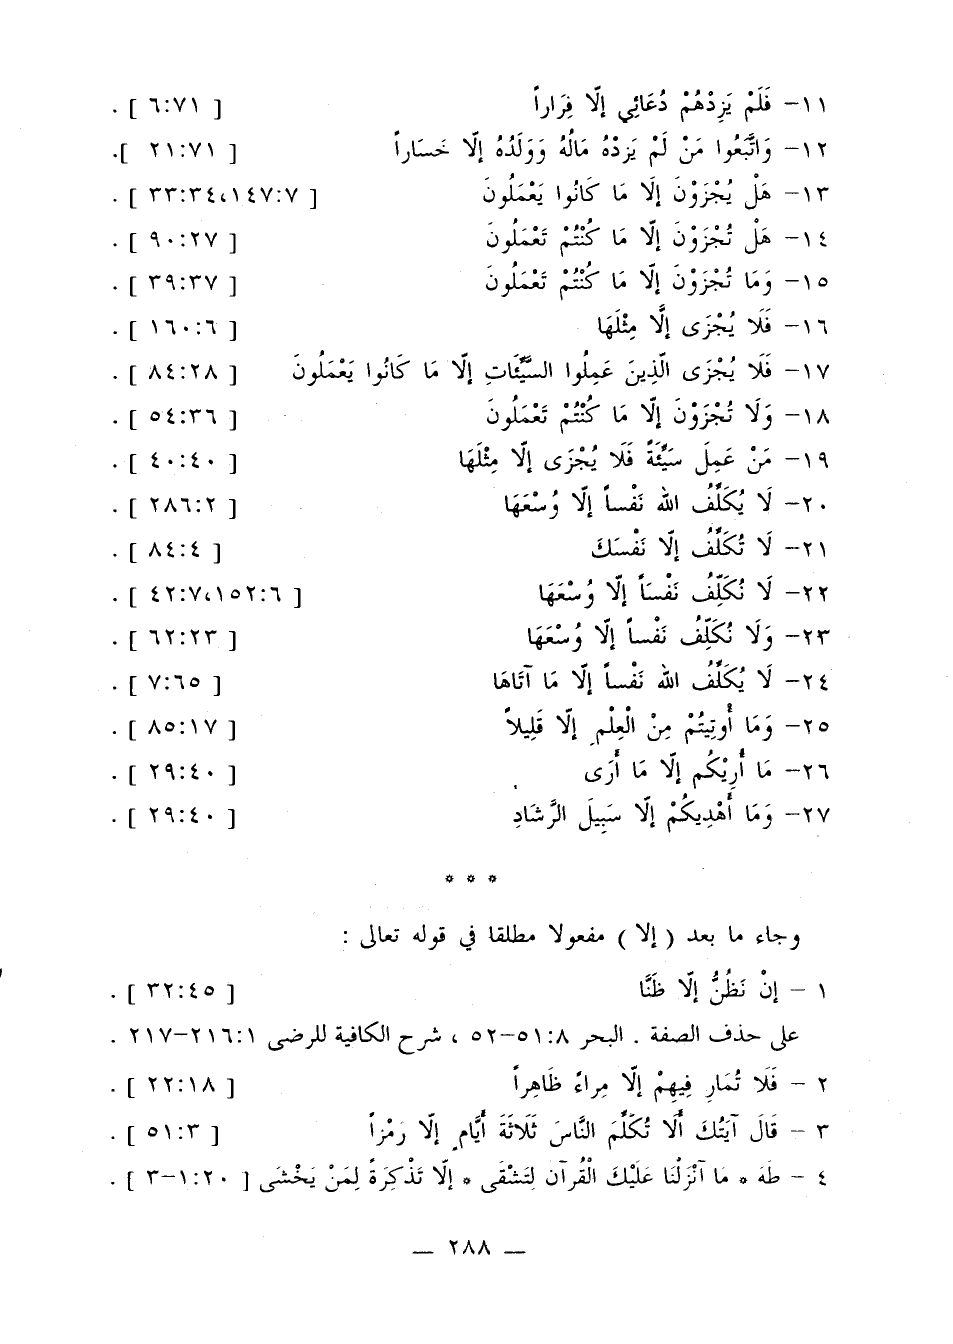 ١١– فَلَمْ يَزِدْهُمْ دُعَائِي إلَّا فِرَاراً [ ٦:٧١ ] .
١٢– وَاتَّبَعُوا مَنْ لَمْ يَزِدْهُ مَالُهُ وَوَلَدُهُ إلَّا خَسَاراً [ ٢١:٧١ ].
١٣– هَلْ يُجْزَوْنَ إلَا مَا كَانُوا يَعْمَلُونَ [ ٣٣:٣٤،١٤٧:٧ ] .
١٤– هَلْ تُجْزَوْنَ إلَّا مَا كُنْتُمْ تَعْمَلُونَ [ ٩٠:٢٧ ] .
١٥– وَمَا تُجْزَوْنَ إلَّا مَا كُنْتُمْ تَعْمَلُونَ [ ٣٩:٣٧ ] .
١٦– فَلَا يُجْزَى إلَّا مِثْلَهَا [ ١٦٠:٦ ] .
١٧– فَلَا يُجْزَى الَّذِينَ عَمِلُوا السَّيِّئَاتِ إلَّا مَا كَانُوا يَعْمَلُونَ [ ٨٤:٢٨ ] .
١٨– وَلَا تُجْزَوْنَ إلَّا مَا كُنْتُمْ تَعْمَلُونَ [ ٥٤:٣٦ ] .
١٩– مَنْ عَمِلَ سَيِّئَةً فَلَا يُجْزَى إلَّا مِثْلَهَا [ ٤٠:٤٠ ] .
٢٠– لَا يُكَلِّفُ الله نَفْساً إلَّا وُسْعَهَا [ ٢٨٦:٢ ] .
٢١– لَا تُكَلَّفُ إلَّا نَفْسَكَ [ ٨٤:٤ ] .
٢٢– لَا نُكَلِّفُ نَفْسَاً إلَّا وُسْعَهَا [ ٤٢:٧،١٥٢:٦ ] .
٢٣– وَلَا نُكَلِّفُ نَفْساً إلَّا وُسْعَهَا [ ٦٢:٢٣ ] .
٢٤– لَا يُكَلِّفُ الله نَفْساً إلَّا مَا آتَاهَا [ ٧:٦٥ ] .
٢٥– وَمَا أُوتِيتُمْ مِنْ الْعِلْمِ إلَّا قَلِيلاً [ ٨٥:١٧ ] .
٢٦– مَا أُرِيْكُم إلَّا مَا أَرَى [ ٢٩:٤٠ ] .
٢٧– وَمَا أَهْدِيكُمْ إلَّا سَبِيلَ الرَّشَادِ [ ٢٩:٤٠ ] .
* * *
وجاء ما بعد ( إلا ) مفعولا مطلقا في قوله تعالى :
١ – إنْ نَظُنُّ إلَّا ظَنًّا [ ٣٢:٤٥ ] .
على حذف الصفة . البحر ٥١:٨–٥٢ ، شرح الكافية للرضى ٢١٦:١–٢١٧ .
٢ – فَلَا تُمَارِ فِيهِمْ إلَّا مِراءً ظَاهِراً [ ٢٢:١٨ ] .
٣ – قَالَ آيَتُكَ أَلَا تُكَلِّمَ النَّاسَ ثَلَاثَةَ أَيَّامٍ إلَّا رَمْزاً [ ٥١:٣ ] .
٤ – طَهَ * مَا آنْزَلْنَا عَلَيْكَ الْقُرآن لِتَشْقَى * إلَّا تَذْكِرَةً لِمَنْ يَخْشَى [ ١:٢٠–٣ ] .
— ٢٨٨ —